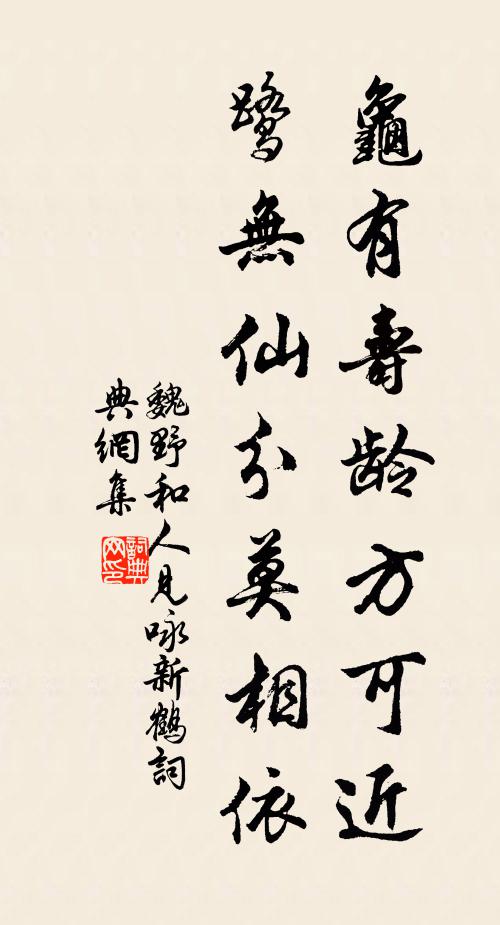 龜有壽龄方可近
鹭無仙分莫相依
魏野和人見咏新鶴詞
典網集
詞典
网印